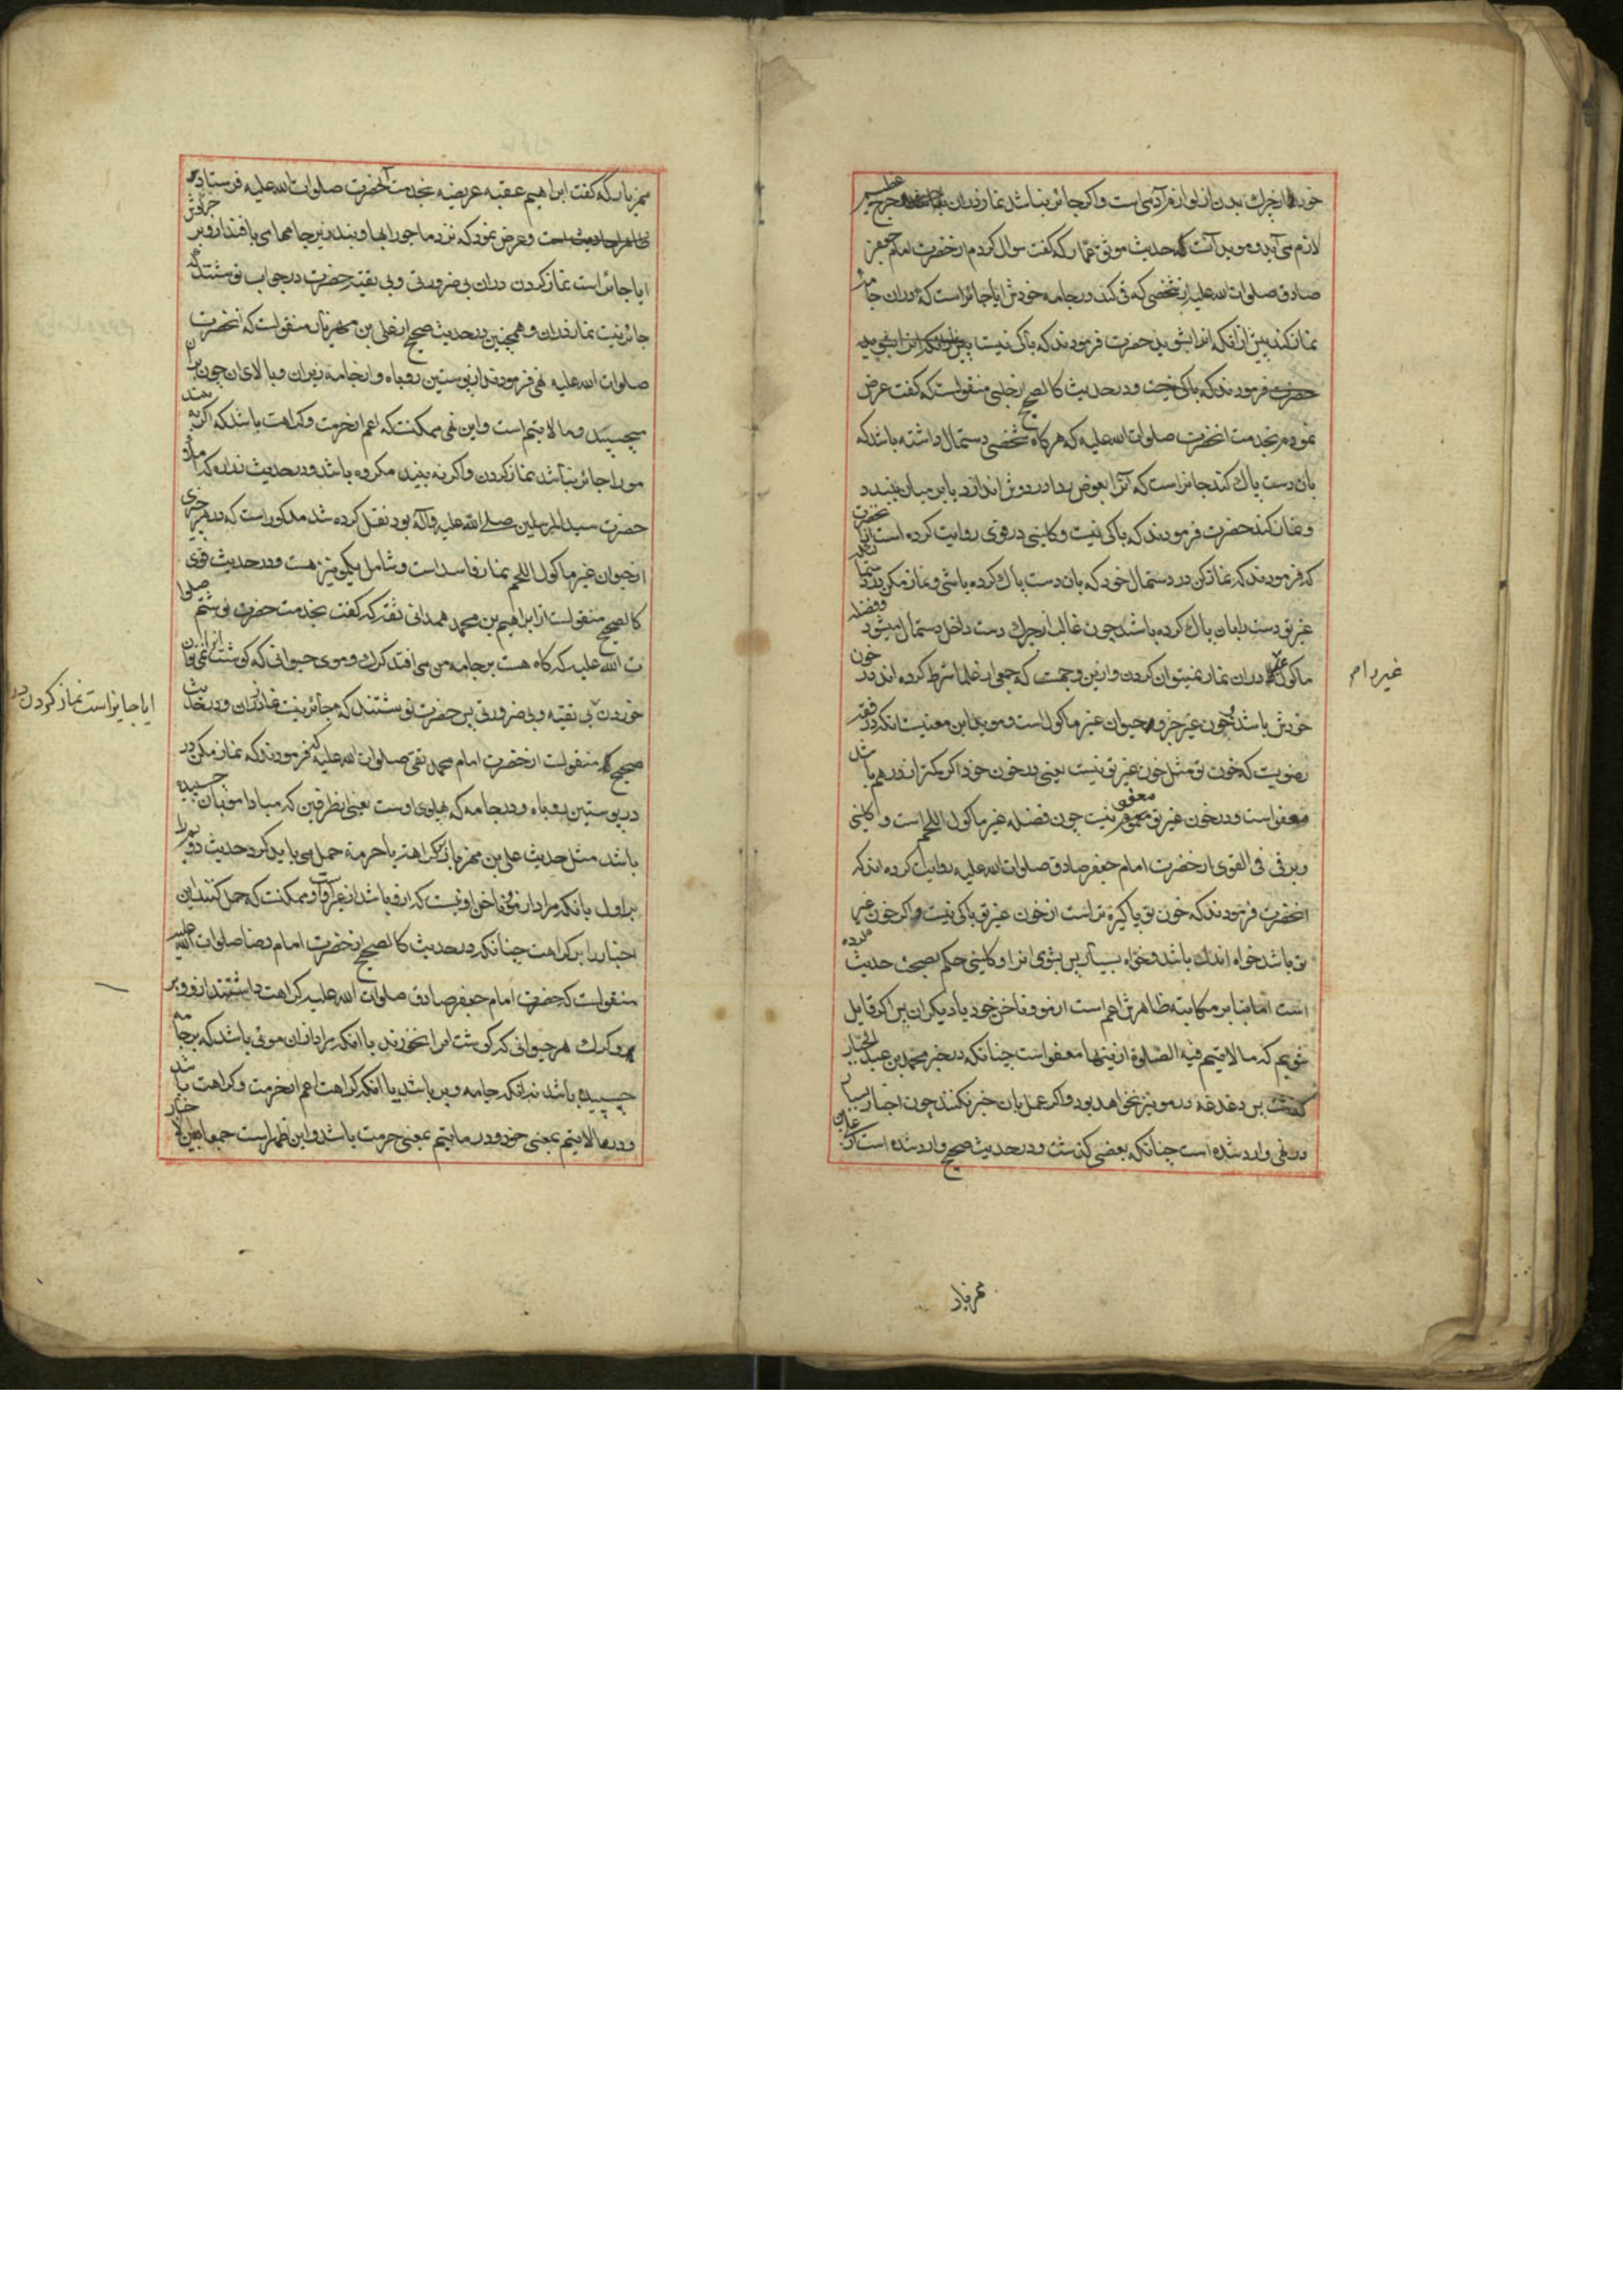 لازم می آید و موید آنست حدیث موثق عمار که گفت سوال کردم از حضرت امام جعفر
صادق صلوات الله علیه از شخصی که قی کند در جامه خودش ایا جائز است که در ان جامه
نماز کند پیش از انکه انرا بشوید حضرت فرمودند که باکی نیست
حضرت فرمودند که باکی نیست و در حدیث کالصحیح از حلبی منقولست که گفت عرض
نمودم بخدمت انحضرت صلوات الله علیه که هر کاه شخصی دستمال داشته باشد که
بان دست پاک کند جائز است که آنرا بعوض ردا در دوش اندازد یا بر میان ببندد
و نماز کند حضرت فرمودند که باکی نیست و کلینی در قوی روایت کرده است
که فرمودند که نماز کن در دستمال خود که بان دست پاک کرده باشی و نماز مکن در
غیری دست بان پاک کرده باشد چون غالبا از چرک دست داخل دستمال میشود
در ان نماز نمیتوان کردن و ازین وجهست که جمعی از علما شرط کرده اند در خون
غیر دام
خودش باشد چون غیر جزو حیوان غیر ماکول است و موید این معنیست انکه در فقه
رضویست که خون تو مثل خون غیر تو نیست یعنی در خون خود اگر کمتر از درهم باشد
معفو است و در خون غیر تو معفو نیست چون فضله غیر ماکول اللحم است و کلینی
و برقی فی القوی از حضرت امام جعفر صادق صلوات الله علیه روایت کرده اند که
انحضرت فرمودند که خون تو پاکیزه تر است از خون غیر تو باکی نیست و اگر خون غیر
تو باشد خواه اندک باشد و خواه بسیار پس بشوی انرا و کلینی حکم بصحت حدیث
است اما بنا بر مکاتبه ظاهرش اعم است از مو و ناخن خود یا دیکران پس اگر قایل
شویم که ما لا یتم فیه الصلوة ازینها معفو است چنانکه در خبر محمد بن عبد الجبار
پس دغدغه در مو نیز نخواهد بود و اگر عمل بان خبر نکنند چون اخبار بسیار
در نهی وارد شده است چنانکه بعضی گذشت و در حدیث صحیح وارد شده است از علی بن
مهزیار
مهزیار که گفت ابراهیم عقبه عریضه بخدمت آنحضرت صلوات الله علیه فرستاد
و عرض نمود که نزد ما جورابها و بند زیر جامهای بافند از وبر خرگوش
ایا جائز است نماز کردن در ان بی ضرورتی و بی تقیه حضرت در جواب نوشتند که
جائز نیست نماز در ان و همچنین در حدیث صحیح از علی بن مهزیار منقولست که انحضرت
صلوات الله علیه نهی فرمودند از پوستین روباه و از جامه زیران و بالای ان چون بران
میچسبد و ما لا یتم است و این نهی ممکنست که اعم از حرمت و کراهت باشد که اگر به بیند
مو را جائز نباشد نماز کردن و اگر نه بیند مکروه باشد و در حدیث زراره که املاء
حضرت سید المرسلین صلی الله علیه و آله بود نقل کرده شد مذکور است که در هر چیزی
از حیوان غیر ماکول اللحم نماز فاسد است و شامل یکمو نیز هست و در حدیث قوی
کالصحیح منقولست از ابراهیم بن محمد همدانی ثقه که گفت بخدمت حضرت نوشتم صلوا
ت الله علیه که گاه هست بر جامه من می افتد کرک و موی حیوانی که گوشت انرا نمی توان
خوردن بی تقیه و بی ضرورتی پس حضرت نوشتند که جائز نیست نماز در ان و در حدیث
ایا جایز است نماز کردن در
صحیح منقولست از حضرت امام محمد تقی صلوات الله علیه که فرمودند که نماز مکن در
در پوستین روباه و در جامه که پهلوی اوست یعنی بطرفین که مبادا مو بان چسبیده
باشد مثل حدیث علی بن مهزیار بر کراهت یا حرمة حمل می باید کرد حدیث دویم را
براول بانکه مراد از مو و ناخن او نیست که از و باشد از غیر او و ممکنست که حمل کنند این
اخبار را بر کراهت چنانکه در حدیث کالصحیح از حضرت امام رضا صلوات الله علیه
منقولست که حضرت امام جعفر صادق صلوات الله علیه کراهت داشتند از وبر
و کرک هر حیوانی که گوشت انرا نخورند با انکه مراد از ان موئی باشد که بر جامه
چسبیده باشد نه انکه جامه وبر باشد یا انکه کراهت اعم از حرمت و کراهت باشد
و در ما لا یتم بمعنی خود و در ما یتم بمعنی حرمت باشد و این اظهر است جمعا بین الاخبار